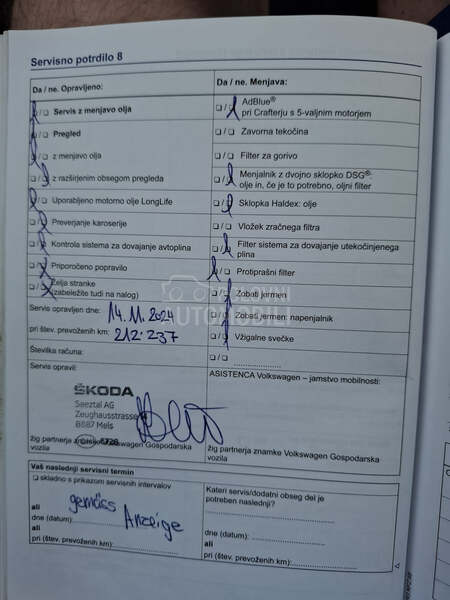 Servisno potrdilo 8
Da / ne. Opravljeno:
☐/☐ Servis z menjavo olja
☐/☐ Pregled
☐/☐ z menjavo olja
☐/☐ z razširjenim obsegom pregleda
☐/☐ Uporabljeno motorno olje LongLife
☐/☐ Preverjanje karoserije
☐/☐ Kontrola sistema za dovajanje avtoplina
☐/☐ Priporočeno popravilo
☐/☐ Želja stranke
(zabeležite tudi na nalog)
Servis opravljen dne: 14.11.2024
pri štev. prevoženih km: 212.237
Številka računa:
Da / ne. Menjava:
☐/☐ AdBlue®
pri Crafterju s 5-valjnim motorjem
☐/☐ Zavorna tekočina
☐/☐ Filter za gorivo
☐/☐ Menjalnik z dvojno sklopko DSG®:
olje in, če je to potrebno, oljni filter
☐/☐ Sklopka Haldex: olje
☐/☐ Vložek zračnega filtra
☐/☐ Filter sistema za dovajanje utekočinjenega
plina
☐/☐ Protiprašni filter
☐/☐ Zobati jermen
☐/☐ Zobati jermen: napenjalnik
☐/☐ Vžigalne svečke
☐/☐
Servis opravil:
ŠKODA
Seeztal AG
Zeughausstrasse
8887 Mels
žig partnerja znamke Volkswagen Gospodarska
vozila
ASISTENCA Volkswagen – jamstvo mobilnosti:
žig partnerja znamke Volkswagen Gospodarska
vozila
Vaš naslednji servisni termin
☐ skladno s prikazom servisnih intervalov
gemäss
Anzeige
ali
dne (datum):
ali
pri (štev. prevoženih km):
Kateri servis/dodatni obseg del je
potreben naslednji?
dne (datum):
ali
pri (štev. prevoženih km):